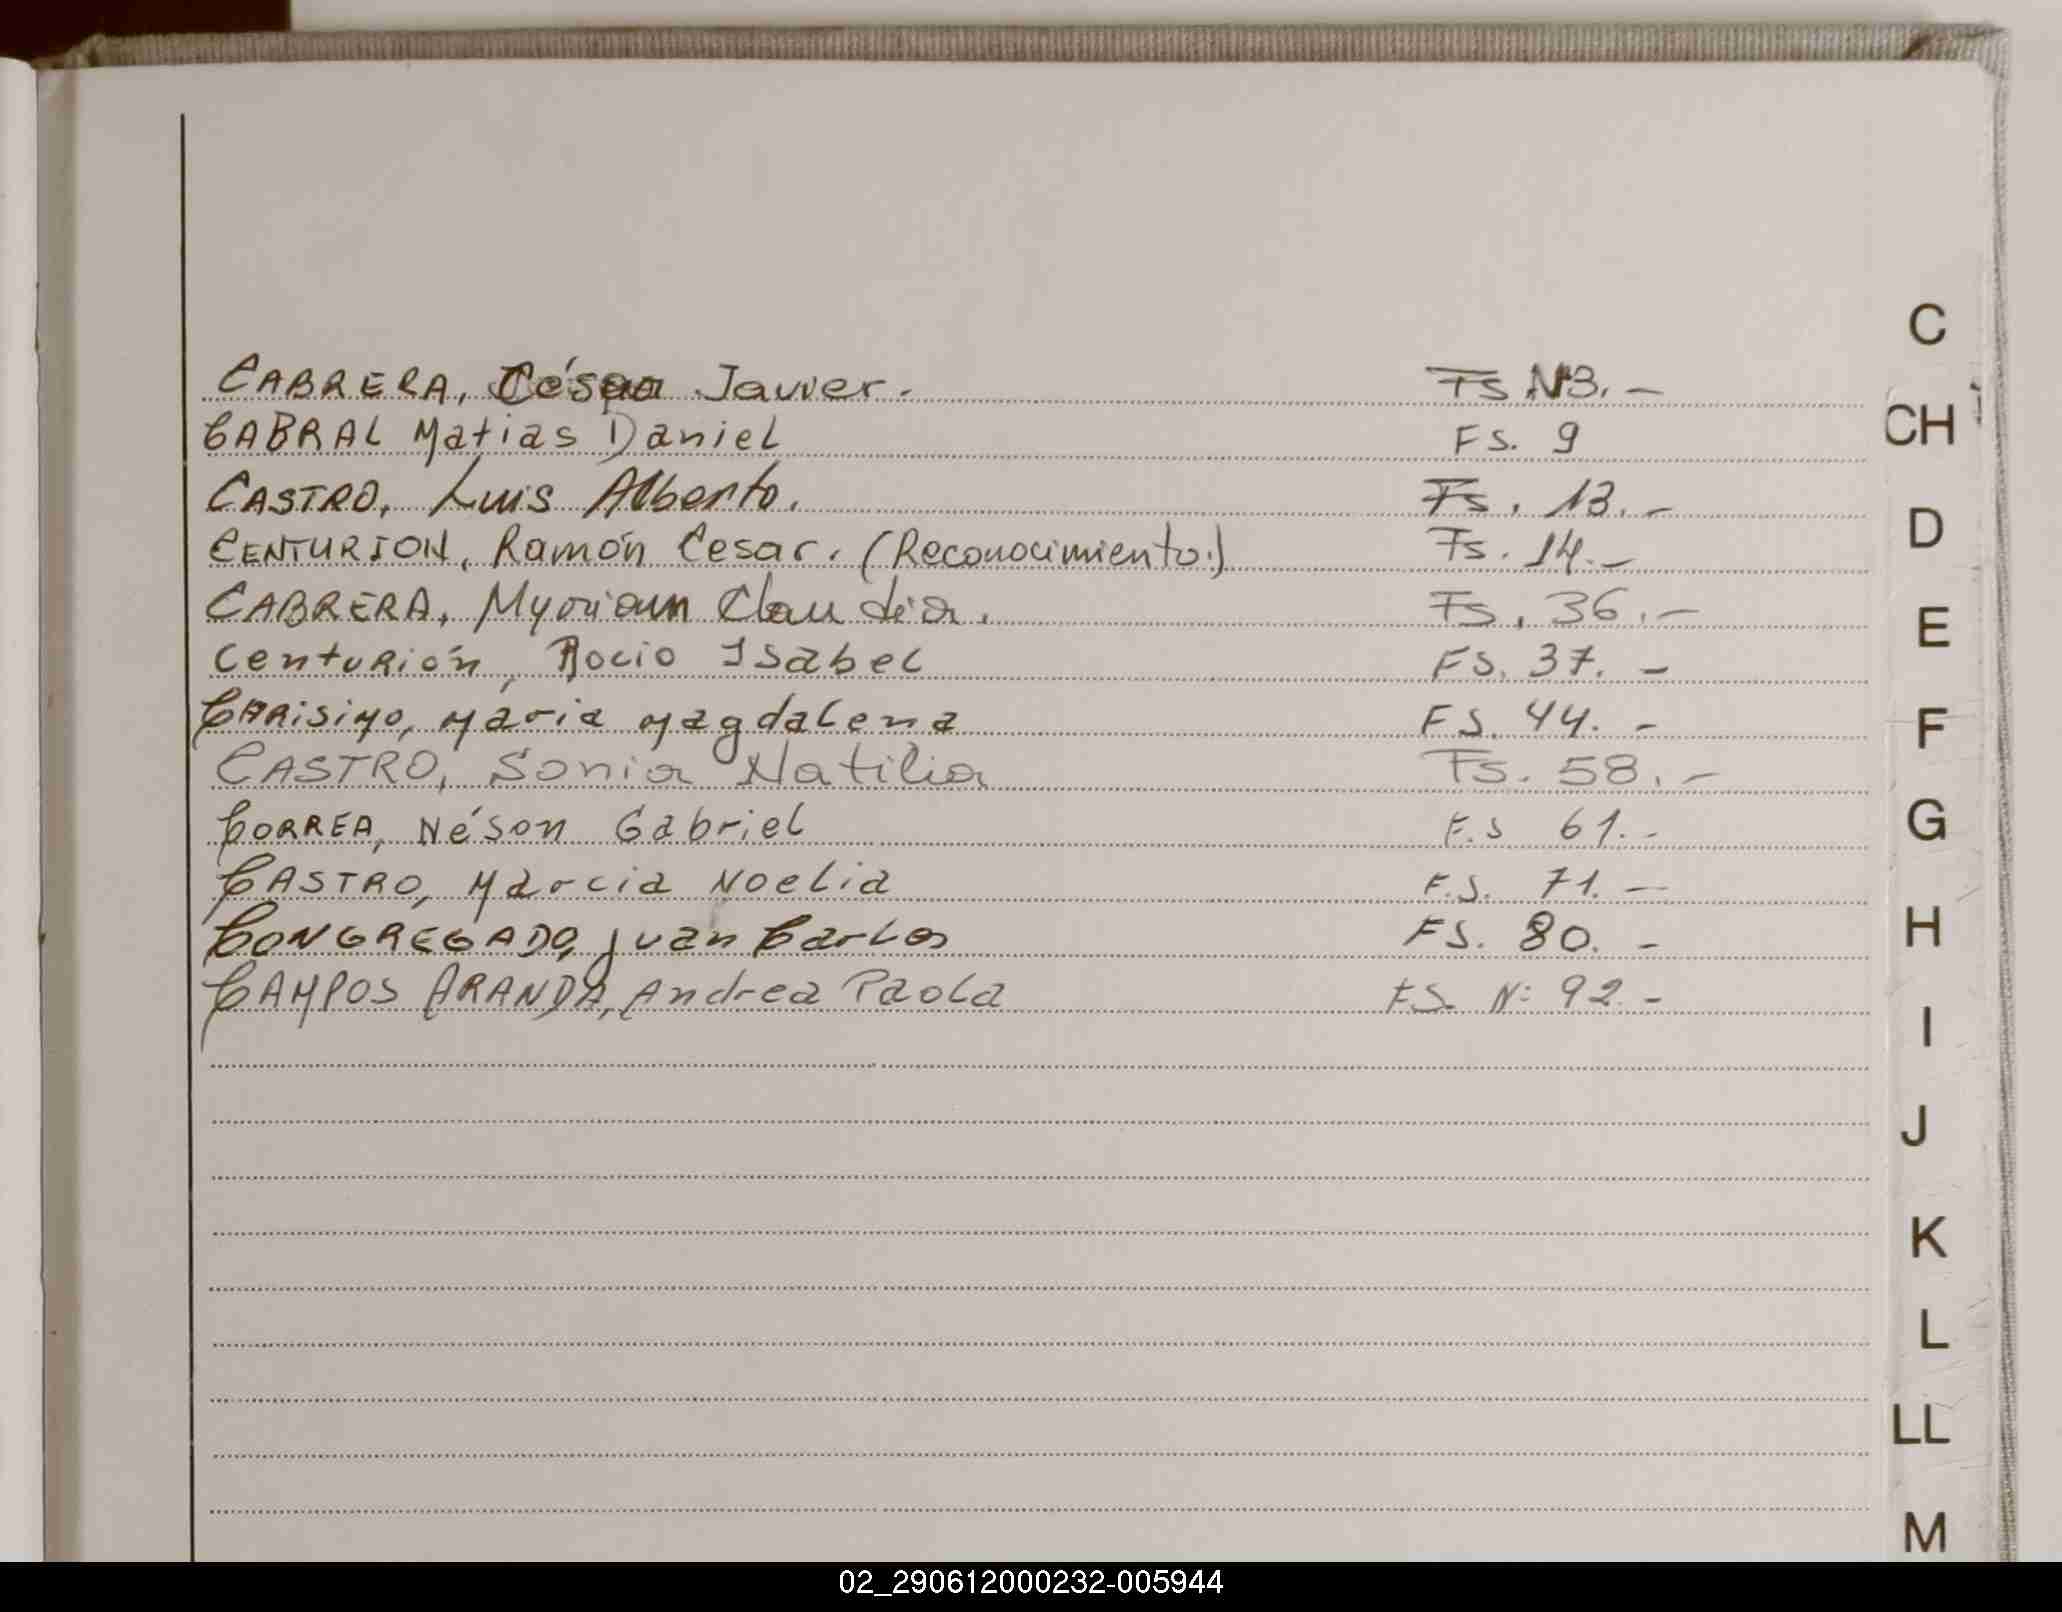 CABRERA, César Javier. Fs Nº3.-
CABRAL Matias Daniel FS. 9
CASTRO, Luis Alberto. Fs. 13.-
CENTURION, Ramón Cesar. (Reconocimiento.) Fs. 14.-
CABRERA, Myriam Claudia. Fs. 36.-
Centurión, Rocio Isabel FS. 37.-
CARisimo, María Magdalena FS. 44.-
CASTRO, Sonia Natilia Fs. 58.-
CORREA, Néson Gabriel F.S 61.-
CASTRO, Marcia Noelia F.S. 71.-
CONGREGADO, Juan Carlos FS. 80.-
CAMPOS ARANDA, Andrea Paola FS. Nº 92.-
C
CH
D
E
F
G
H
I
J
K
L
LL
M
02_290612000232-005944